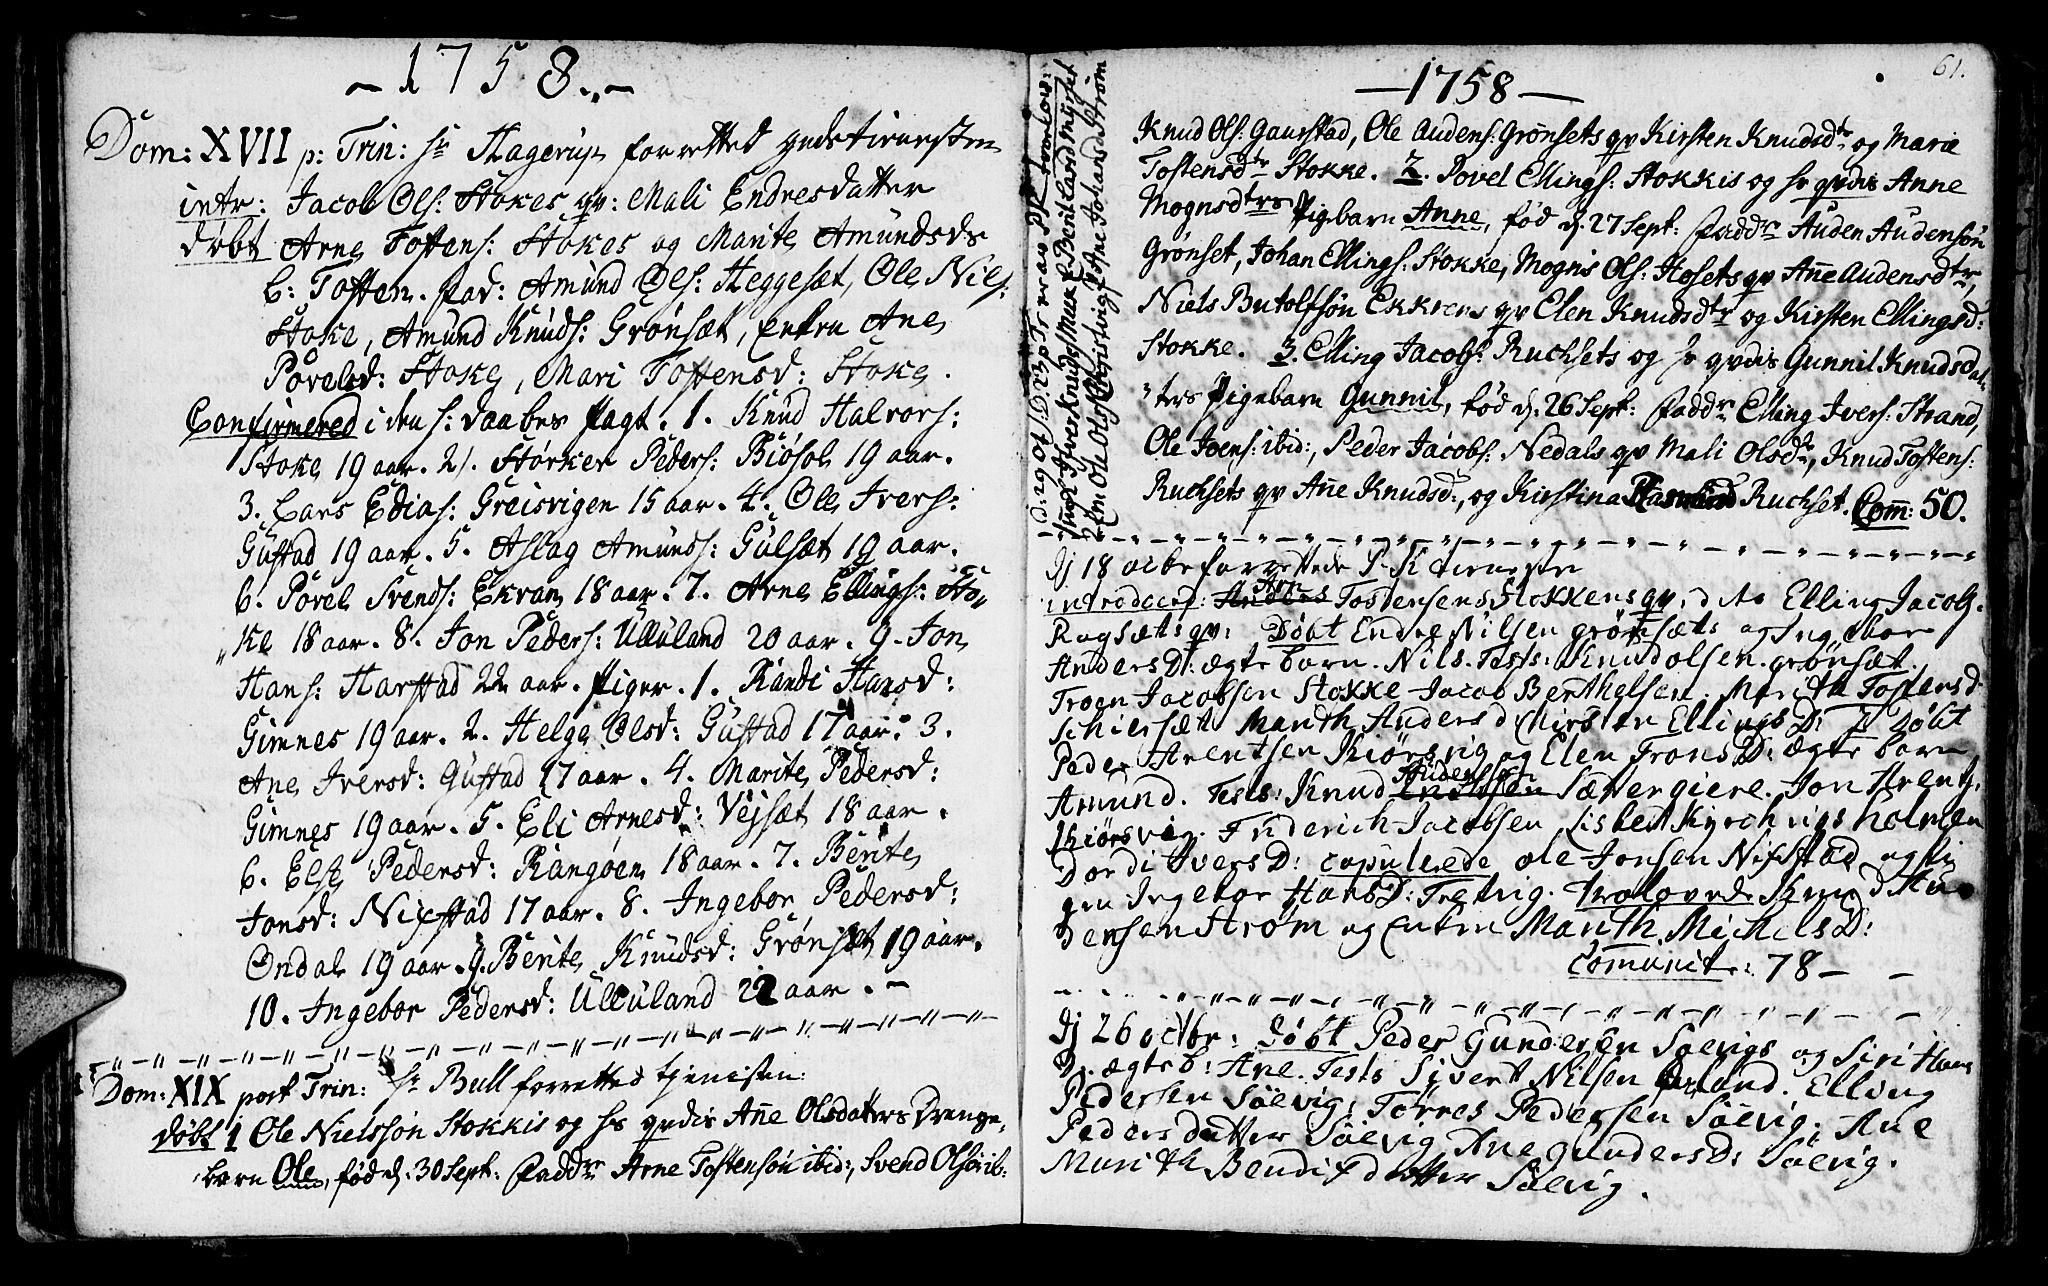 -1758.-
Dom: XVII p: Trin: hr Hagerup forretted
intr: Jacob Ols: Stokes qv: Mali Endresdatter
døbt Arne Tostens: Stokes og Marite Amundsds
b: Tosten. fad: Amund Ols: Heggeset, Ole Niels:
Stoke, Amund Knuds: Grønsæt, Ane
Povelsd: Stoke, Mari Tostensd: Stoke.
Confirmered i den h: daabes pagt. 1. Knud Halvors:
Stoke 19 aar. 2. Størker Peders: Biøsol 19 aar.
3. Lars Edias: Greisvigen 15 aar. 4. Ole Ivers:
Gustad 19 aar. 5. Aslag Amunds: Gulsæt 19 aar.
6. Povel Svends: Ekran 18 aar. 7. Arne Ellings: Sto„
„ke 18 aar. 8. Jon Peders: Ulvuland 20 aar. 9. Jon
Hans: Harstad 22 aar. piger. 1. Randi Hansd:
Gimnes 19 aar. 2. Helge Olsd: Gustad 17 aar. 3.
Ane Iversd: Gustad 17 aar. 4. Marite Pedersd:
Gimnes 19 aar. 5. Eli Arnesd: Vejsæt 18 aar.
6. Else Pedersd: Rangøen 18 aar. 7. Berite
Jonsd: Nixstad 17 aar. 8. Ingebor Pedersd:
Ondal 19 aar. 9. Berite Knudsd: Grønsæt 19 aar.
10. Ingebor Pedersd: Ulvuland 22 aar.
Dom: XIX post Trin: hr Bull forretted tjenisten:
døbt 1 Ole Nielssøn Stokkis og hs qvdis Anne Olsdatters Drenge,
barn Ole, fød d: 30 Sept: Faddr Arne Tostensøn ibid:, Svend Olsøn ib:
61.
-1758-
Knud Ols: Gaurstad, Ole Audens: Grønsets qv Kirsten Knudsdtr og Marie
Tostensdtr Stokke. 2. Povel Ellings: Stokkis og hs qvdis Anne
Mognsdtrs Pigebarn Anne, fød d: 27 Sept: Faddr Auden Audensøn
Grønset, Johan Ellings: Stokke, Mogns Ols: Hosets qv Anne Audensdtr,
Niels Butolfsøn Ekkrens qv Elen Knudsdtr og Kirsten Ellingsd:
Stokke. 3. Elling Jacobs: Ruchsets og hs qvdis Gunnil Knudsdat„
„ters Pigebarn Gunnil, fød d: 26 Sept: Faddr Elling Ivers: Strand,
Ole Joens: ibid:, Peder Jacobs: Nedals qv Mali Olsdtr, Knud Tostens:
Ruchsets qv Anne Knudsd:, og Kirstina Ruchset. Com: 50.
Dj 18 octbr forrettede tienesten
introducer: Arn Tostensens Stokkens qv: dito Elling Jacobs.
Rugsæts qv: Døbt Endre Nilsen grønsæts og Ingebor
AndersD: ægte barn. Nils. Tests: Knud olsen. grønsæt.
Troen Jacobsen Stokke Jacob Berthelsen. Marith Tostensd
Schiersæt Marith Andersd Kirsten EllingsD: Døbt
Peder Arentsen Kiørsvig og Elen TronsD: ægte barn
Amund. Tests: Knud Audenssen Sættergiere. Jon Arents.
Kiørsvig. Friderich Jacobsen, Lisbet Kyrchrigsholmen
Dordi IversD: copulerede ole Jonsen Nixstad og pi
gen Ingebor HansD: Fredvig. trolovede Knud Au
densen Strøm og Enken Marith MichelsD:
Comunit: 78 –
Dj 26 octbr: Døbt Peder Gundersen Søevigs og Siri Hans
D: ægte b: Ane. Tests Sivert Nilsen Elling
Pedersen Søevig, Torres Pedersen Søevig. Ane
Pedersdatter Søevig Ane GundersD: Søevig.
Marith Bendixdatter Søevig.